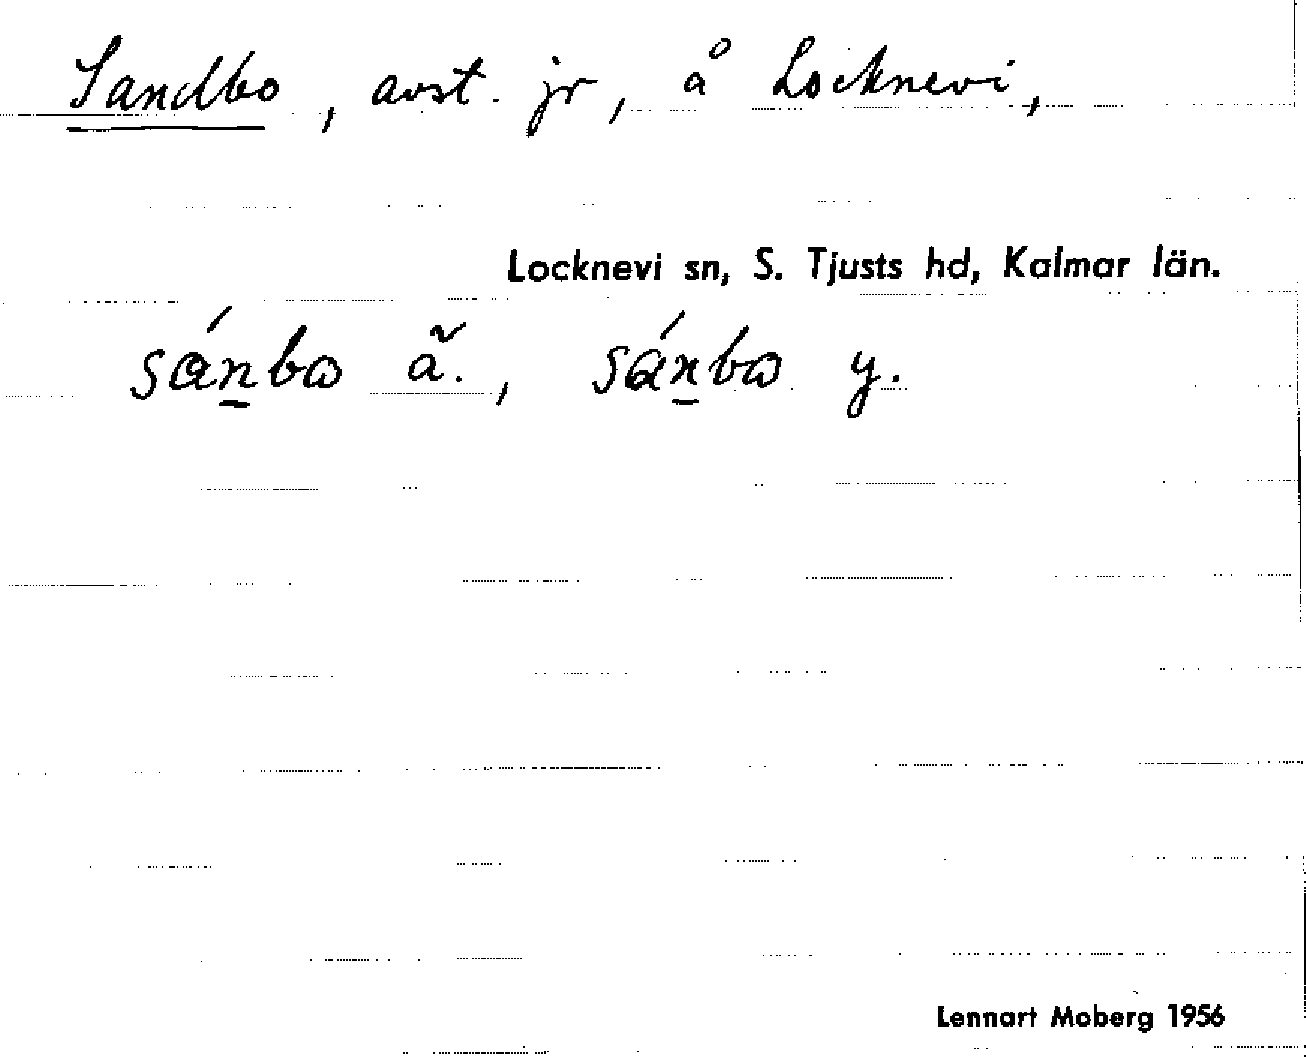 Sandbo, avst. jr, å Locknevi,
Locknevi sn, S. Tjusts hd, Kalmar län.
sán̲bω ä., sán̲bω y.
Lennart Moberg 1956